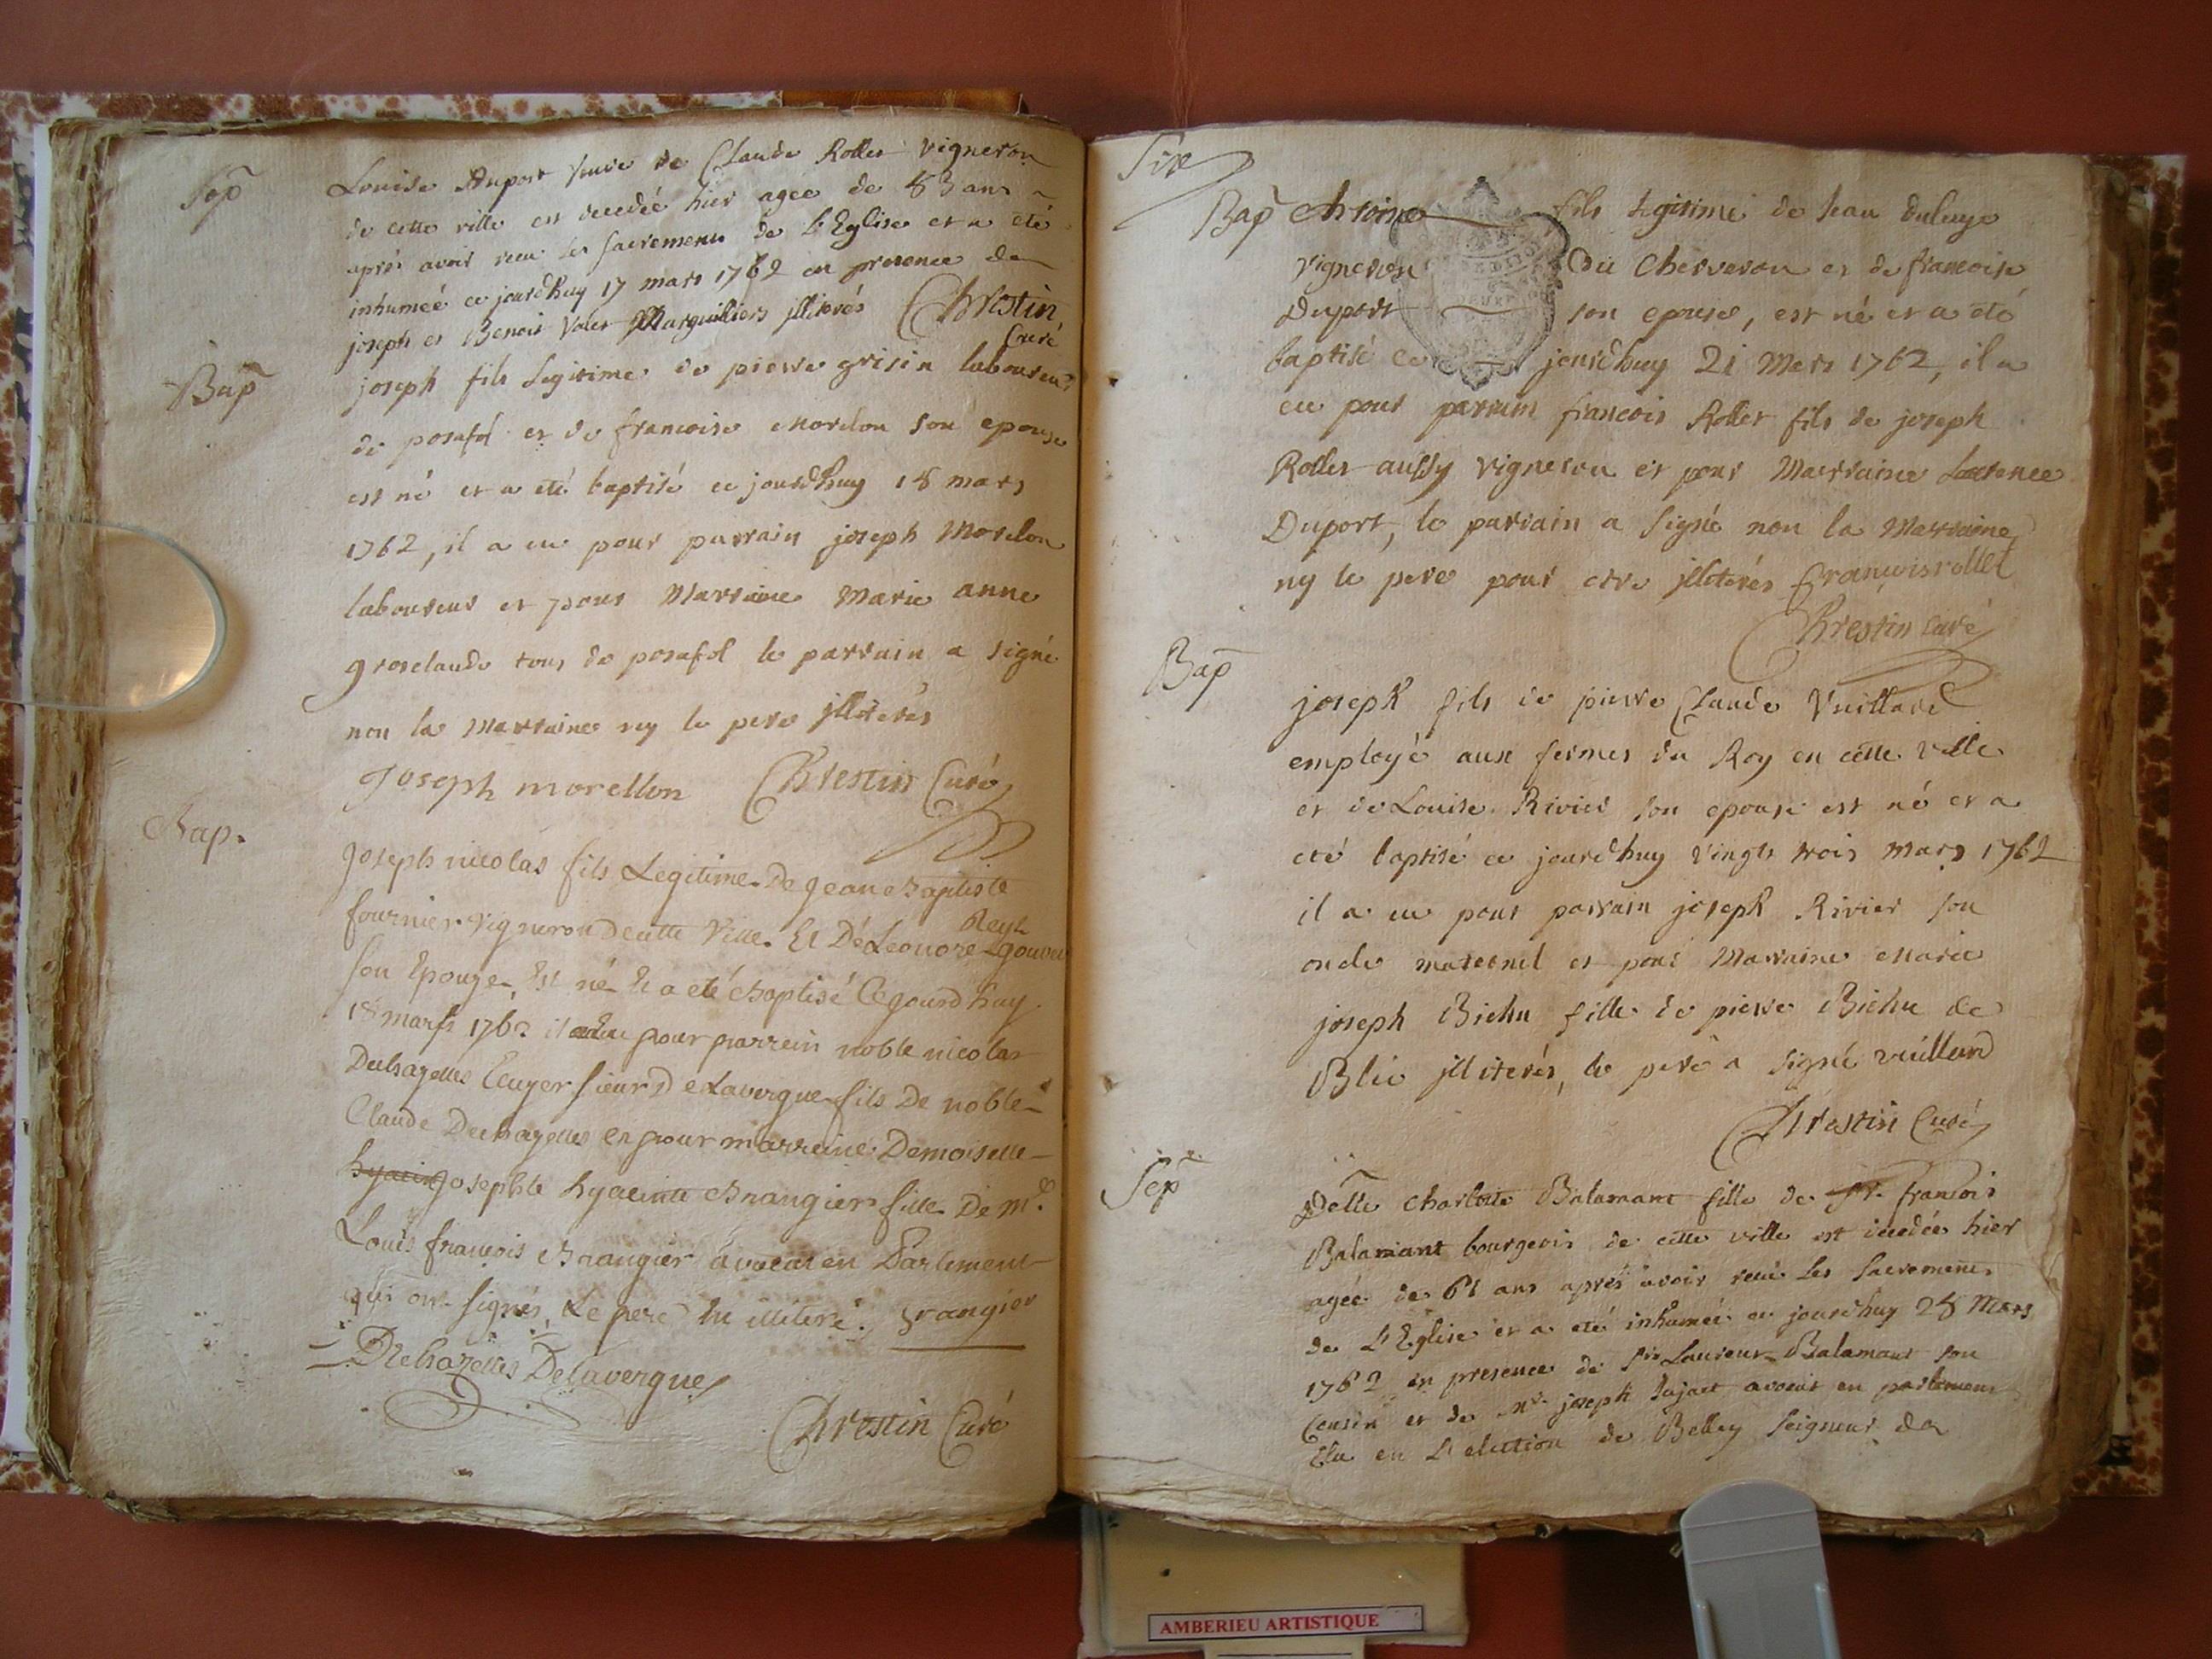 Sep
Louise Duport veuve de Claude Rollet vigneron
de cette ville est decedée hier agée de 83 ans
après avoir reçu les sacremens de L'Eglise et a été
inhumée ce jourdhuy 17 mars 1762 en presence de
joseph et Benoit Valet Marguilliers jlliterés Chrestin
Curé
Bap
joseph fils legitime de pierre grisin laboureur
de posafol et de francoise Morelon son epouse
est né et a eté baptisé ce jourdhuy 18 mars
1762, il a eu pour parrain joseph Morelon
laboureur et pour Marraine Marie anne
grosclaude tous de posafol le parrain a signé
non la Marraine ny le pere jlliterés
Joseph morellon Chrestin Curé
Bap.
Joseph nicolas fils Legitime De Jean Baptiste
fournier vigneron De cette Ville. Et De Leonore
son Epouze, Est né Et a eté Baptisé Ce Jourdhuy
18 mars 1762 il a eu pour parrein noble nicolas
Dechazelles Ecuyer sieur De Lavergne fils De noble
Claude Dechazelles et pour marreine Demoiselle
Josephte hyacinte Brangier fille De Me
Louis françois Brangier avocat en Parlement
qui ont signés, Le pere illiteré. Brangier
Dechazelles Delavergne
Chrestin Curé
Six
Bap
Antoine fils legitime de Jean
vigneron Du Cherveron et de francoise
Duport son epouse, est né et a été
baptisé ce jourdhuy 21 Mars 1762, il a
eu pour parrain francois Rollet fils de joseph
Rollet aussy vigneron et pour Marraine Laurence
Duport, le parrain a signé non la Marraine
ny le pere pour etre jlliterés françois rollet
Chrestin curé
Bap
joseph fils de pierre Claude Vuillard
employé aux fermes du Roy en cette ville
et de Louise Rivier son epouse est né et a
eté baptisé ce jourdhuy vingt trois mars 1762
il a eu pour parrain joseph Rivier son
oncle maternel et pour Marraine Marie
joseph Bichu fille de pierre Bichu de
jlliterés, le pere a signé vuillard
Chrestin Curé
Sep
Delle Charlotte Balamant fille de sr. francois
Balamant bourgeois de cette ville est decedée hier
agée de ans après avoir reçu les sacremens
de L'Eglise et a eté inhumée ce jourdhuy 28 Mars
1762 en presence de Sr Laurent Balamant son
Cousin et de Mr. joseph avocat en parlement
Elu en L'election de Belley seigneur de
AMBERIEU ARTISTIQUE